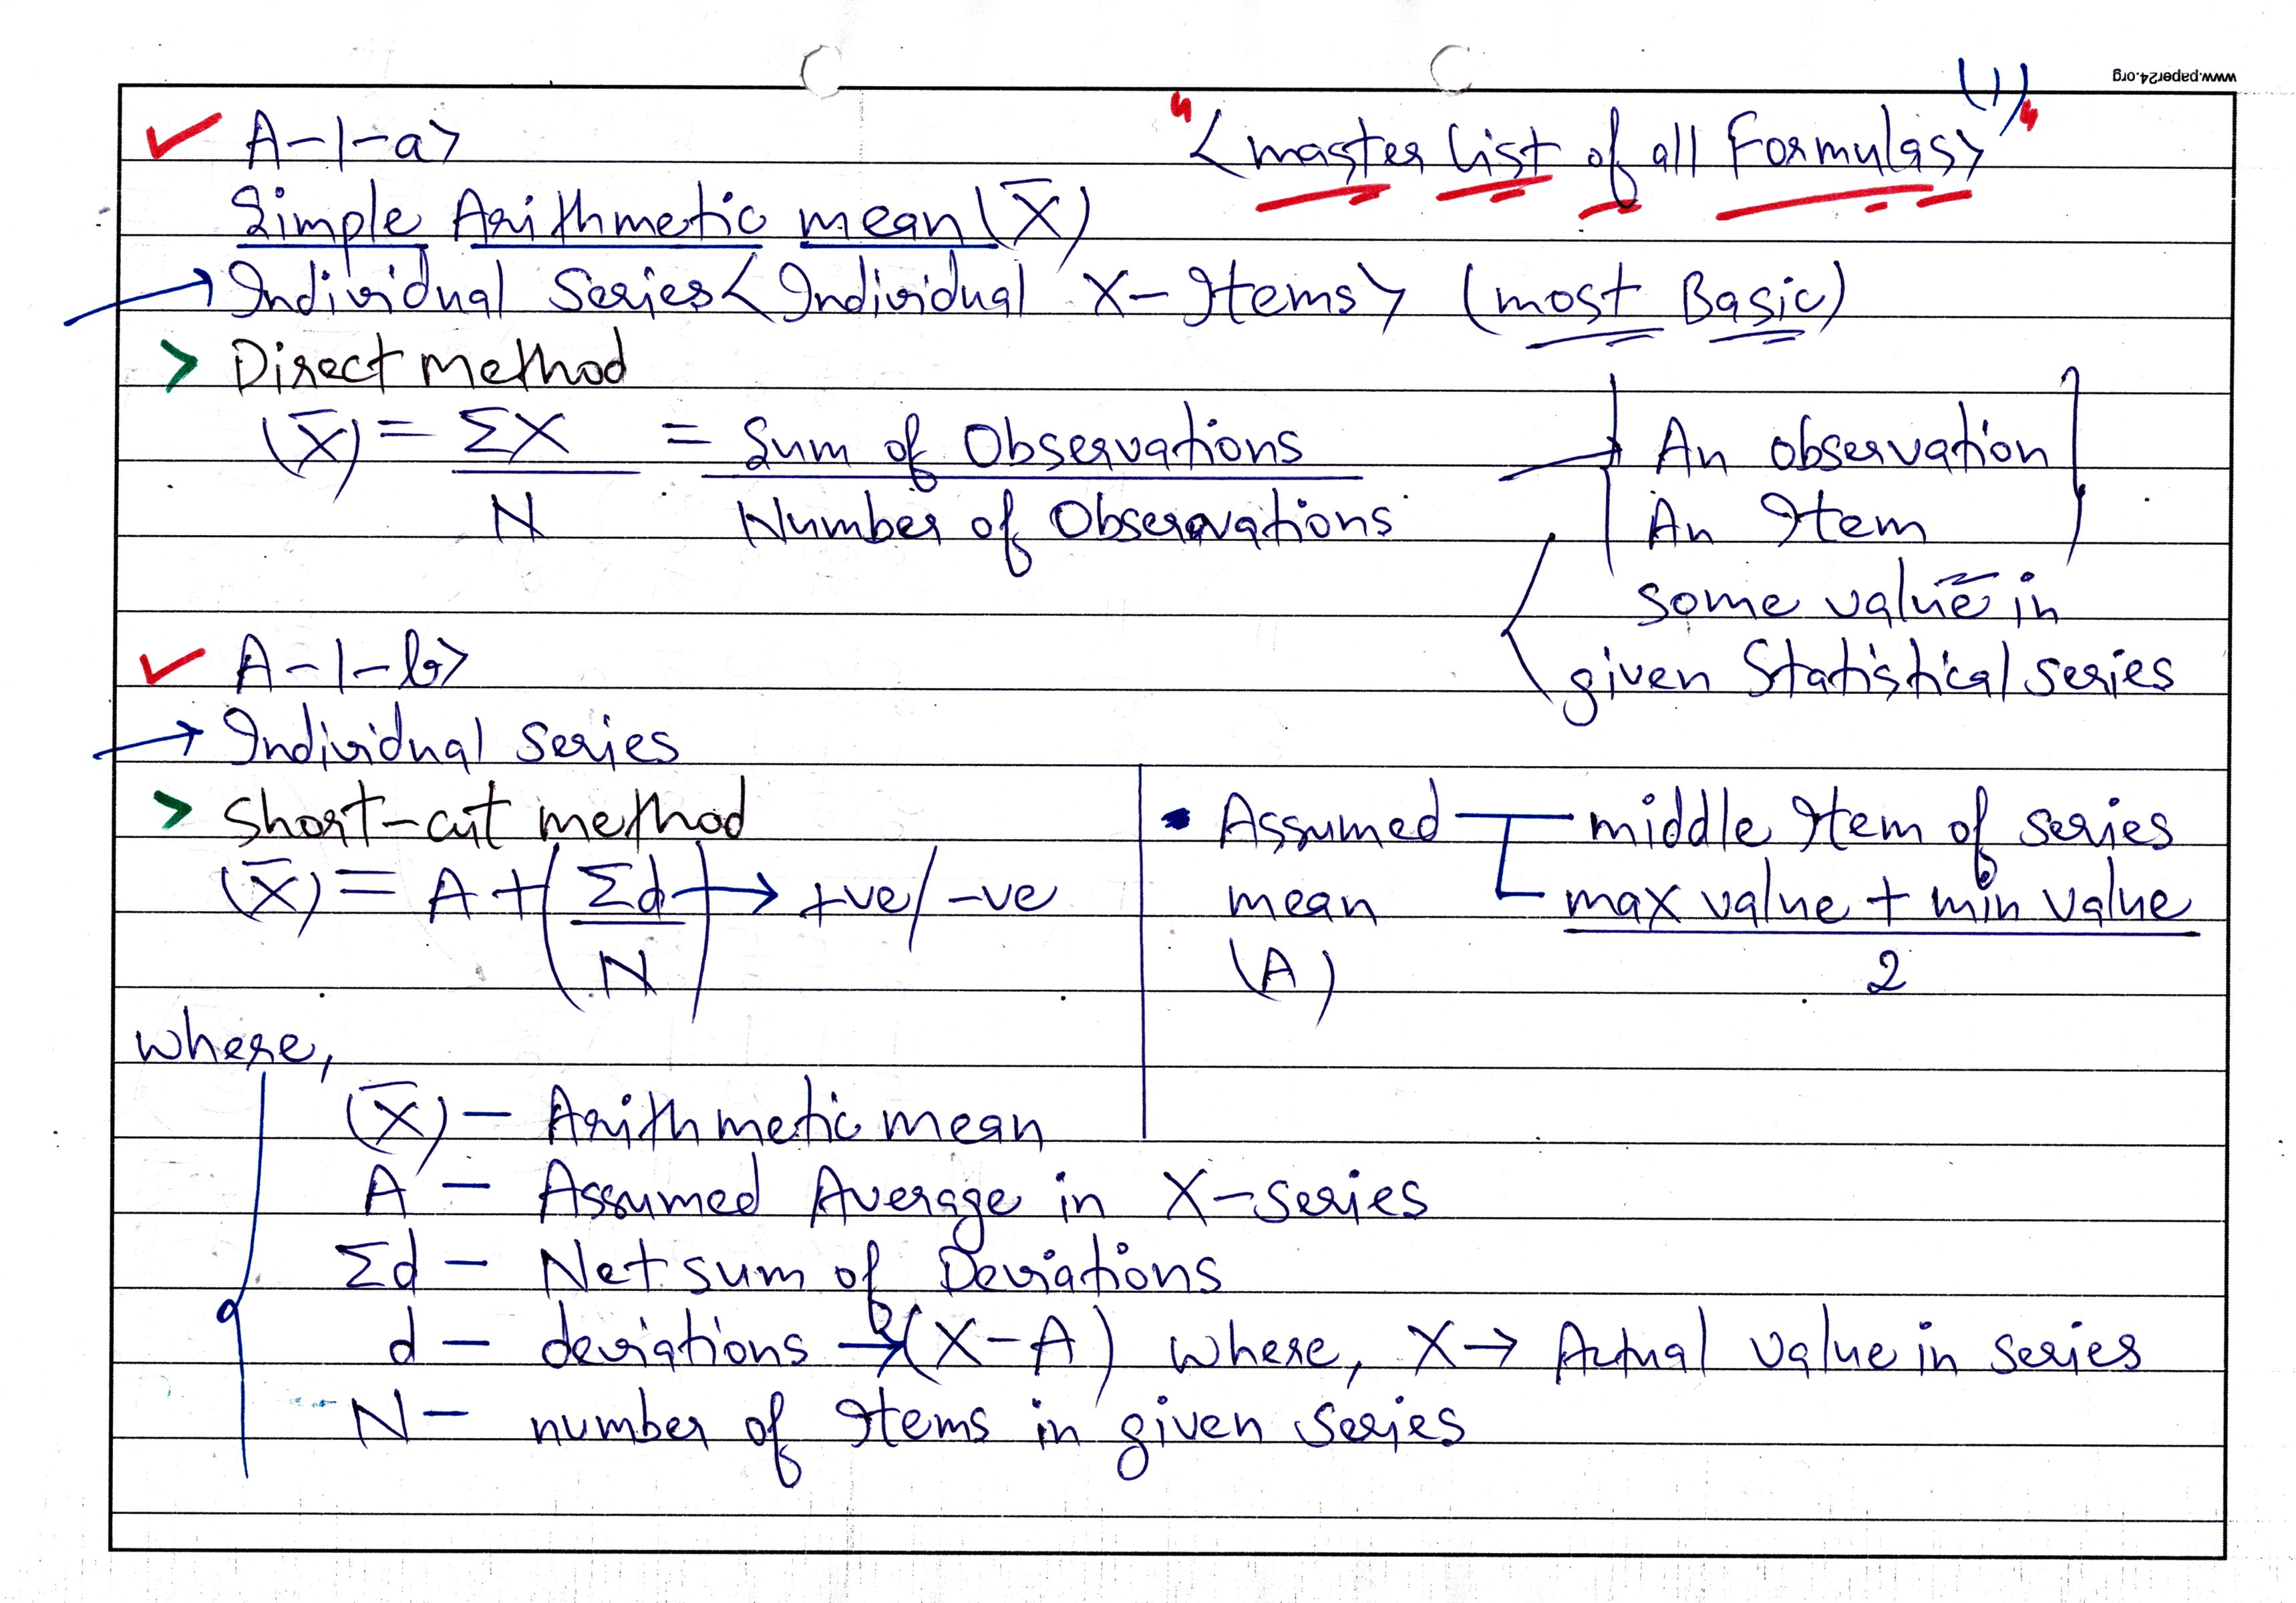 www.paper24.org
(1)
A-1-a>
"<master List of all Formulas>"
Simple Arithmetic mean (X̄)
→ Individual Series <Individual X-Items> (most Basic)
> Direct method
(X̄) = ΣX / N = Sum of Observations / Number of Observations
→ An observation
An Item
some value in
given Statistical series
A-1-b>
→ Individual series
> Short-cut method
(X̄) = A + (Σd / N) → +ve/-ve
• Assumed mean (A)
middle Item of series
max value + min value / 2
where,
(X̄) - Arithmetic mean
A - Assumed Average in X-series
Σd - Net sum of Deviations
d - deviations → (X-A) where, X → Actual value in series
N - number of Items in given series